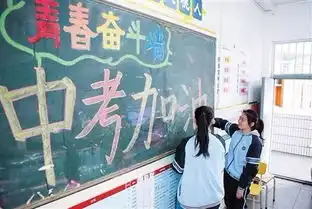 青春奋斗
中考加油